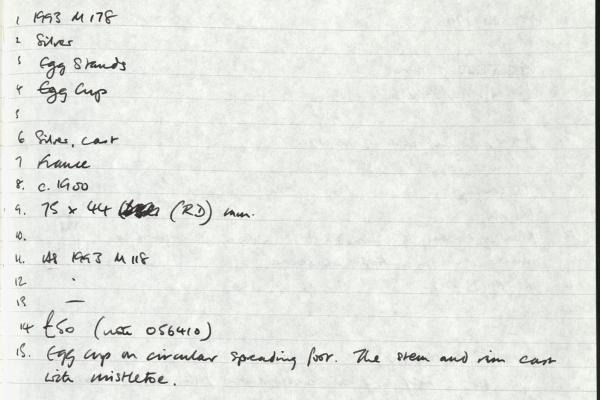 1 1993 M 178
2 Silver
3 Egg Stands
4 Egg Cup
5
6 Silver, cast
7 France
8. c. 1900
9. 75 x 44 (RD) mm.
10.
11. As 1993 M 118
12 .
13 —
14 £50 (note 056410)
15. Egg cup on circular spreading foot. The stem and rim cast
with mistletoe.